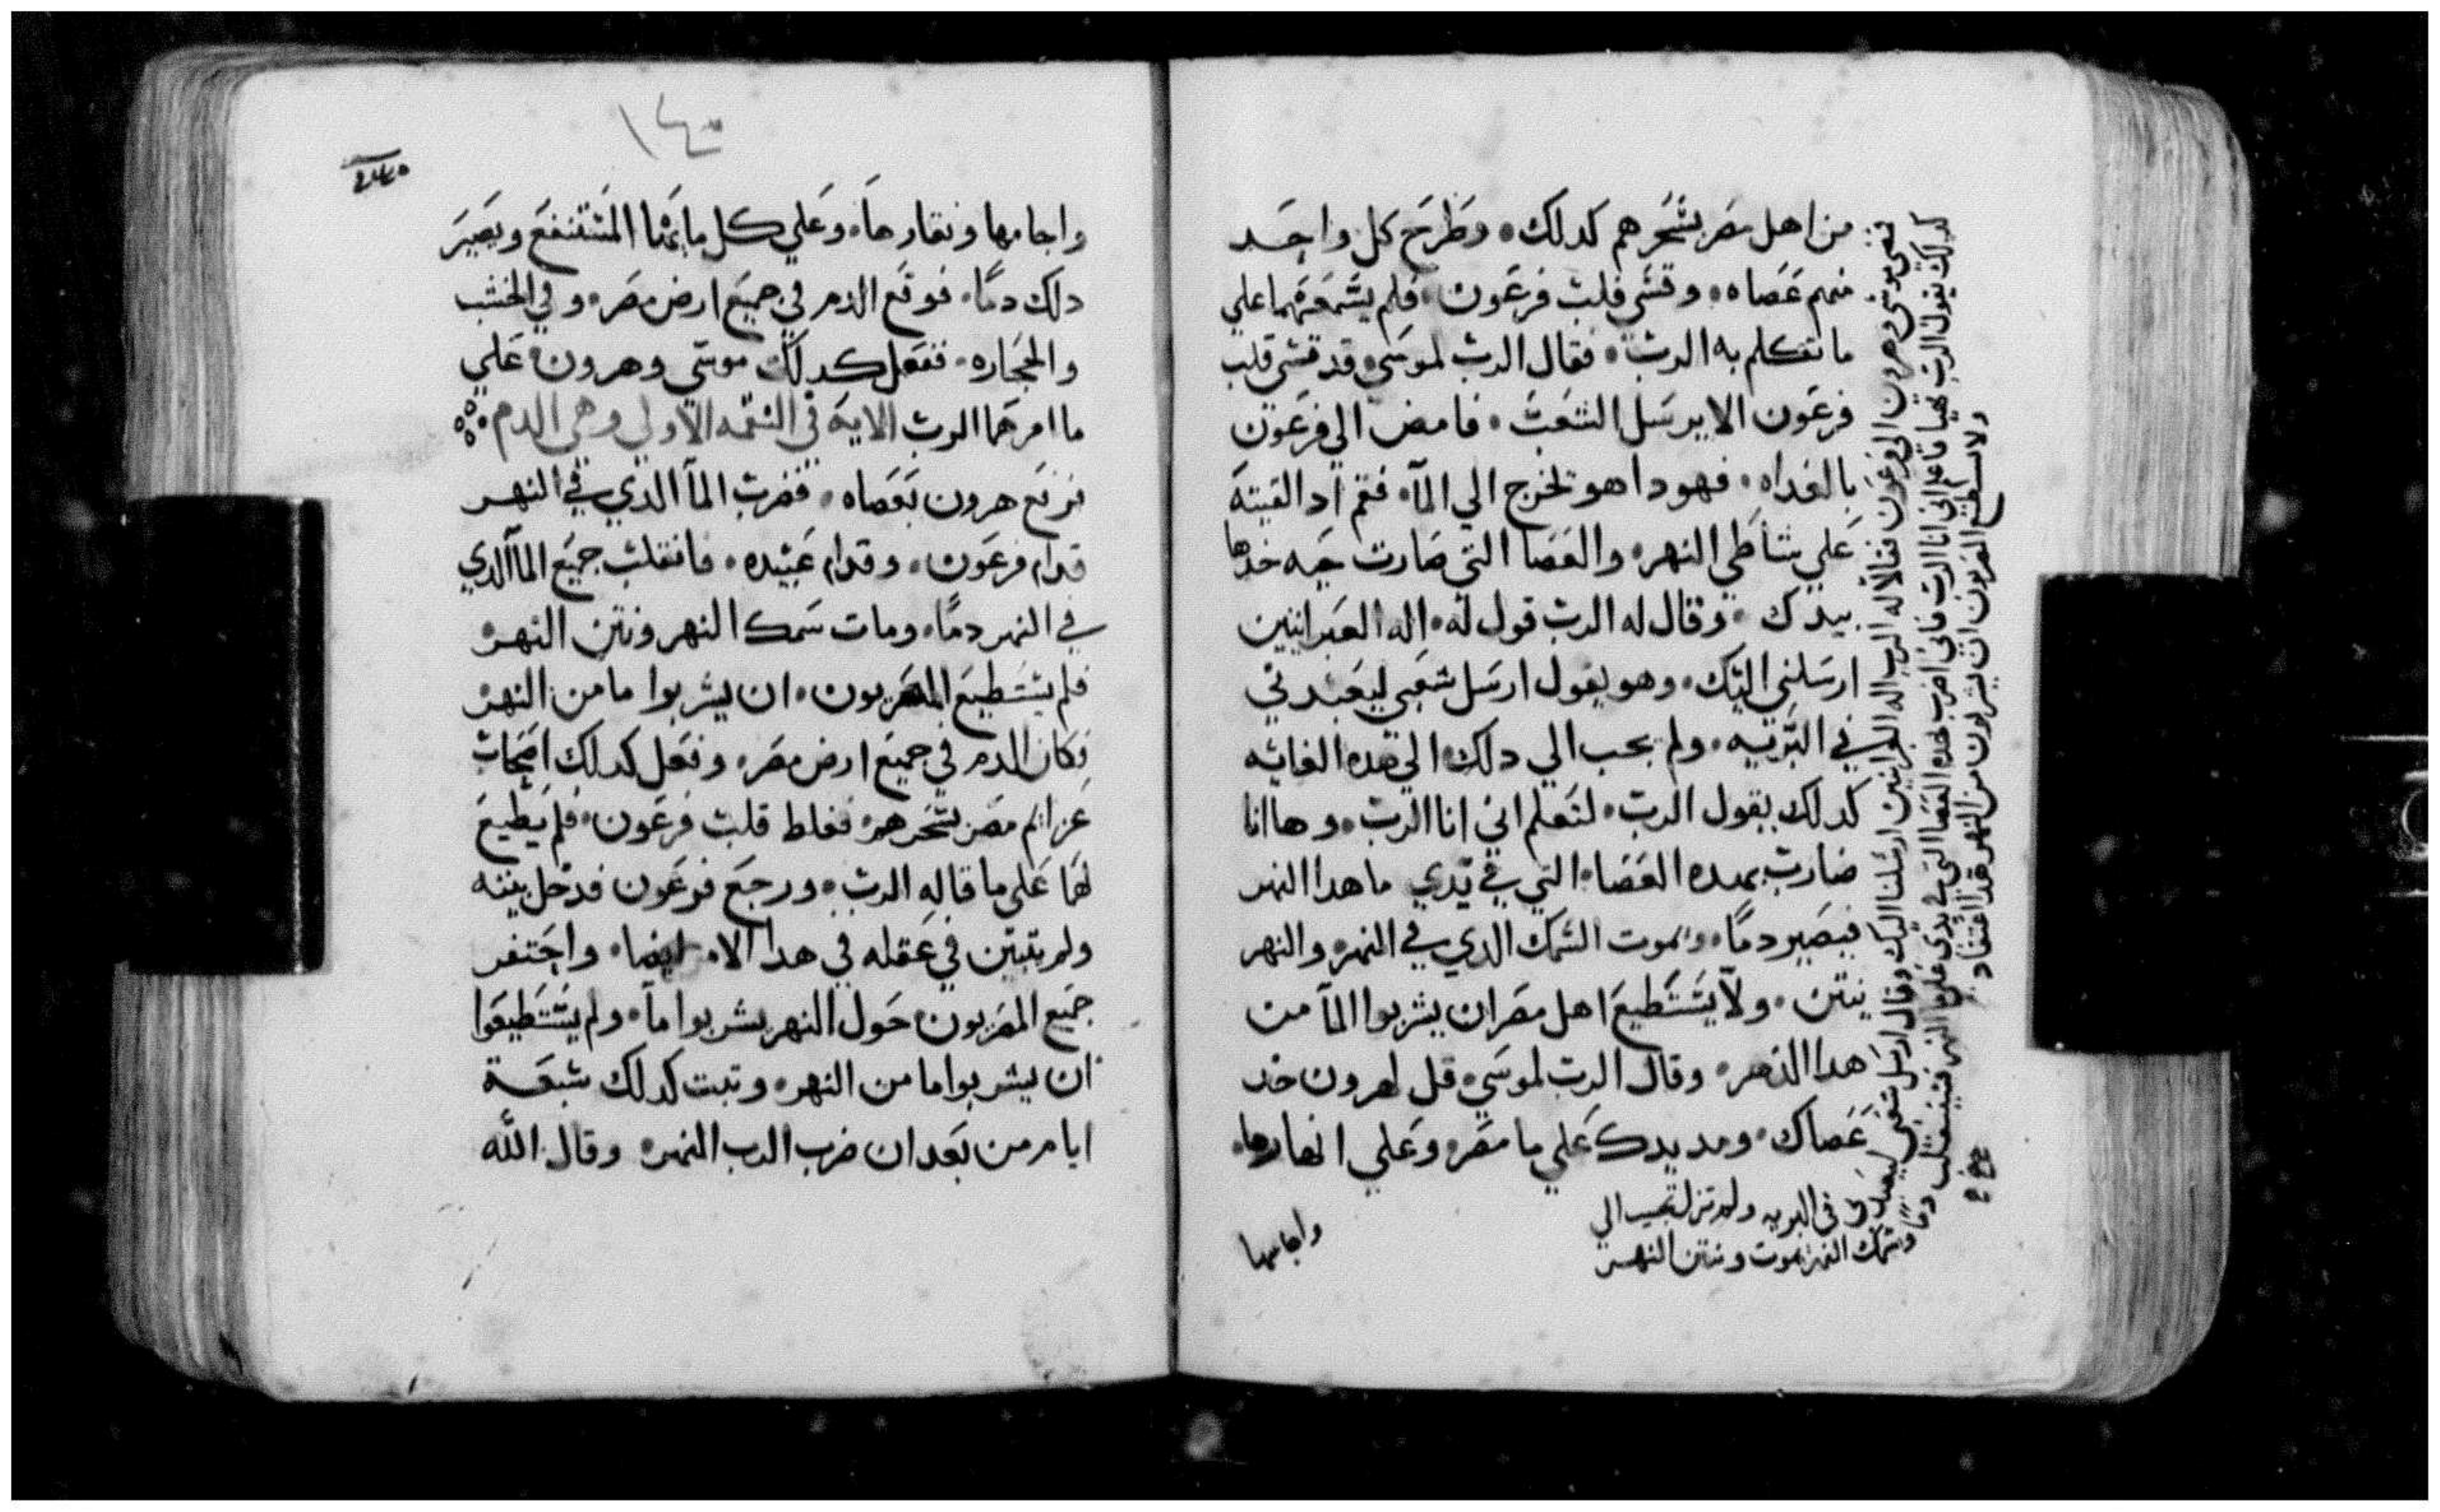 من اهل مصر بسحرهم كدلك. وطرح كل واحد
منهم عصاه. وقسي قلب فرعون. فلم يسمع منهما علي
ما تكلم به الرب. فقال الرب لموسي. قد قسي قلب
فرعون الا يرسل الشعب. فامض الي فرعون
بالغداه. فهودا هو تخرج الي الما. فقم اد القيته
علي شاطي النهر. والعصا التي صارت حيه خدها
بيدك. وقال له الرب قول له. اله العبرانيين
ارسلني اليك. وهو يقول ارسل شعبي ليعبدني
في البريه. ولم بحب الي دلك الي هده الغايه
كدلك يقول الرب. لتعلم اني انا الرب. وها انا
ضارب بهده العصاه التي في يدي ما هدا النهر
فيصير دما. ويموت السمك الدي في النهر. والنهر
ينتن. ولا يستطيع اهل مصر ان يشربوا الما من
هدا النهر. وقال الرب لموسي. قل لهرون خد
عصاك. ومد يدك علي ما مصر. وعلي انهارها.
واجامها
فمضي موسي وهرون الي فرعون فقالا له الرب اله العبرانيين ارسلنا اليك وقال ارسل شعبي ليعبدني في البريه ولم تزل تجيب الي
كدلك يقول الرب بهدا فاعلم اني انا الرب فاني اضرب بهده العصا التي في يدي علي ما النهر فينقلب دما وسمك النهر يموت وينتن النهر
ولا يستطيع المصريون ان يشربون من النهر هدا
١٤٠
واجامها ونقارها. وعلي كل ما بها المستنقع ويصير
دلك دما. فوقع الدم في جميع ارض مصر. وفي الخشب
والحجاره. ففعل كدلك موسي وهرون علي
ما امرهما الرب الايه في النقمه الاولي وهي الدم
فرفع هرون بعصاه. فضرب الما الدي في النهر
قدام فرعون. وقدام عبيده. فانقلب جميع الما الدي
في النهر دما. ومات سمك النهر ونتن النهر
فلم يستطيع المصريون. ان يشربوا ما من النهر
فكان الدم في جميع ارض مصر. وفعل كدلك اصحاب
عزايم مصر بسحرهم فغلط قلب فرعون. فلم يطيع
لهما علي ما قاله الرب. ورجع فرعون فدخل بيته
ولم يتبين في عقله في هدا الامر ايضا. واحتفر
جميع المصريون حول النهر يشربوا ما. ولم يستطيعوا
ان يشربوا ما من النهر. وتبت كدلك سبعة
ايام من بعد ان ضرب الرب النهر. وقال الله